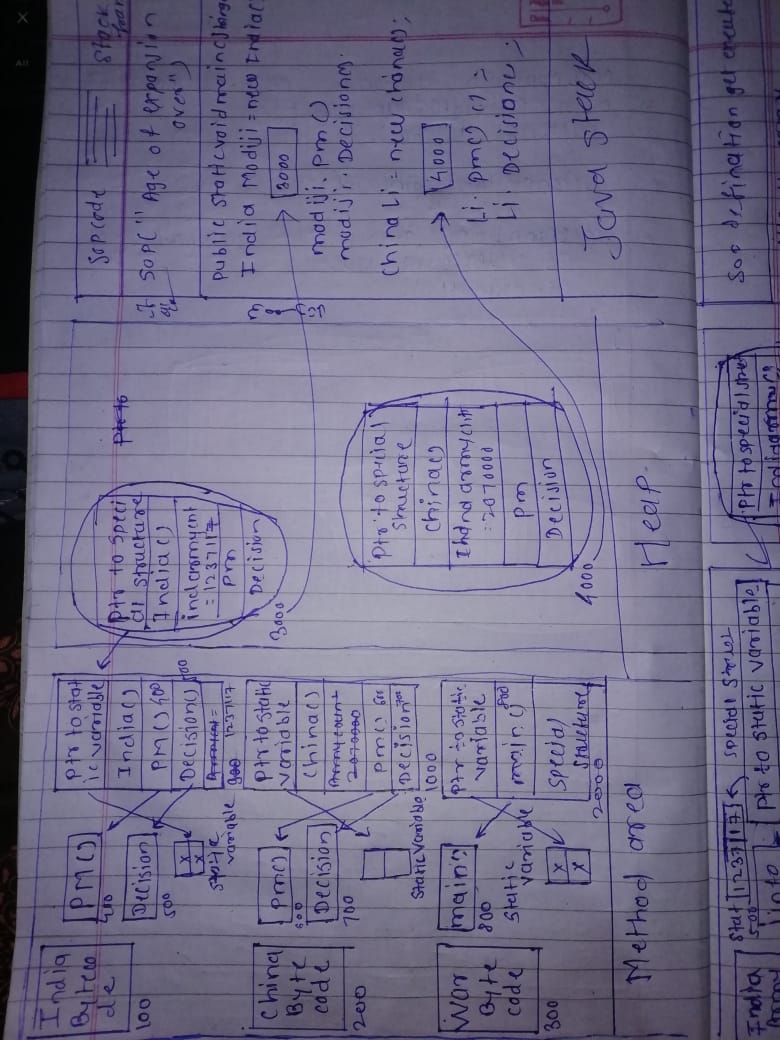 India
Byteco
de
100
PM()
400
Decision()
500
x
x
Static
variable
Ptr to stat
ic variable
India()
PM() 400
Decision() 500
1237117
China
Byte
code
200
pmc)
600
Decision
700
Static Variable
Ptr to static
variable
China()
Armycount
2070000
pmc) 600
Decision 700
1000
War
Byte
code
300
main()
800
Static
variable
x
x
Ptr to static
variable
main() 800
Special
structure
2000
Method area
Ptr to speci
al structure
India()
= 1237117
PM
Decision
3000
Ptr to special
structure
China()
: 2070000
PM
Decision
4000
Heap.
SOP code
Stack
SOP(" Age of expansion
over")
public static void main()
India Modiji = new India(
3000
modiji. PM()
modiji. Decision();
China Li = new China();
4000
Li. pmc) ();
Li. Decision();
Java Stack
India
Stat
500
1237117
special
ptr to static variable
ptr to special
Soo defination get create
All